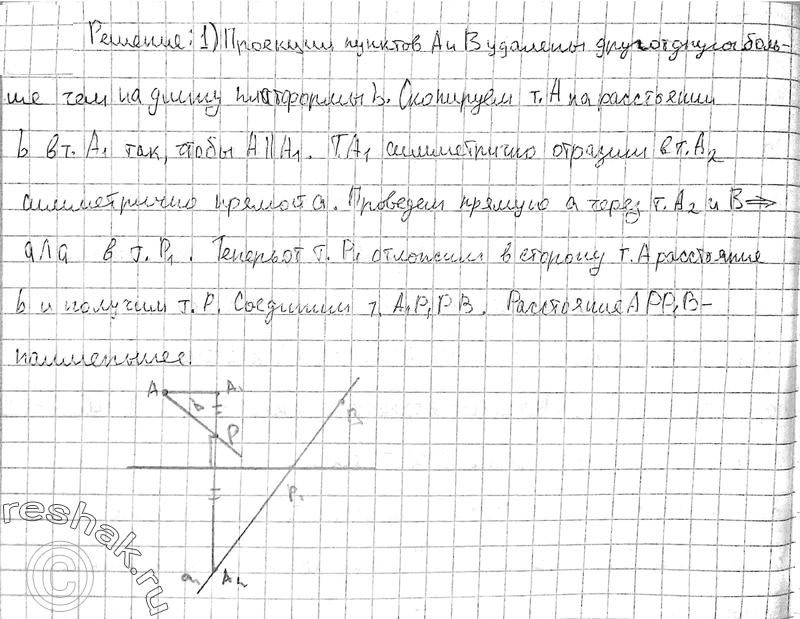 Решение: 1) Проекции пунктов A и B удалены друг от друга боль-
ше чем на длину платформы b. Скопируем т. A на расстоянии
b в т. A₁ так, чтобы A || A₁. Т. A₁ симметрично отразим в т. A₂
симметрично прямой a. Проведем прямую a через т. A₂ и B ⇒
a ∩ a в т. P₁. Теперь от т. P₁ отложим в сторону т. A расстояние
b и получим т. P. Соединим т. A, P₁, P B. Расстояние A P P₁ B –
наименьшее.
A A₁
b
B
P
P₁
a₁ A₂
reshak.ru
©